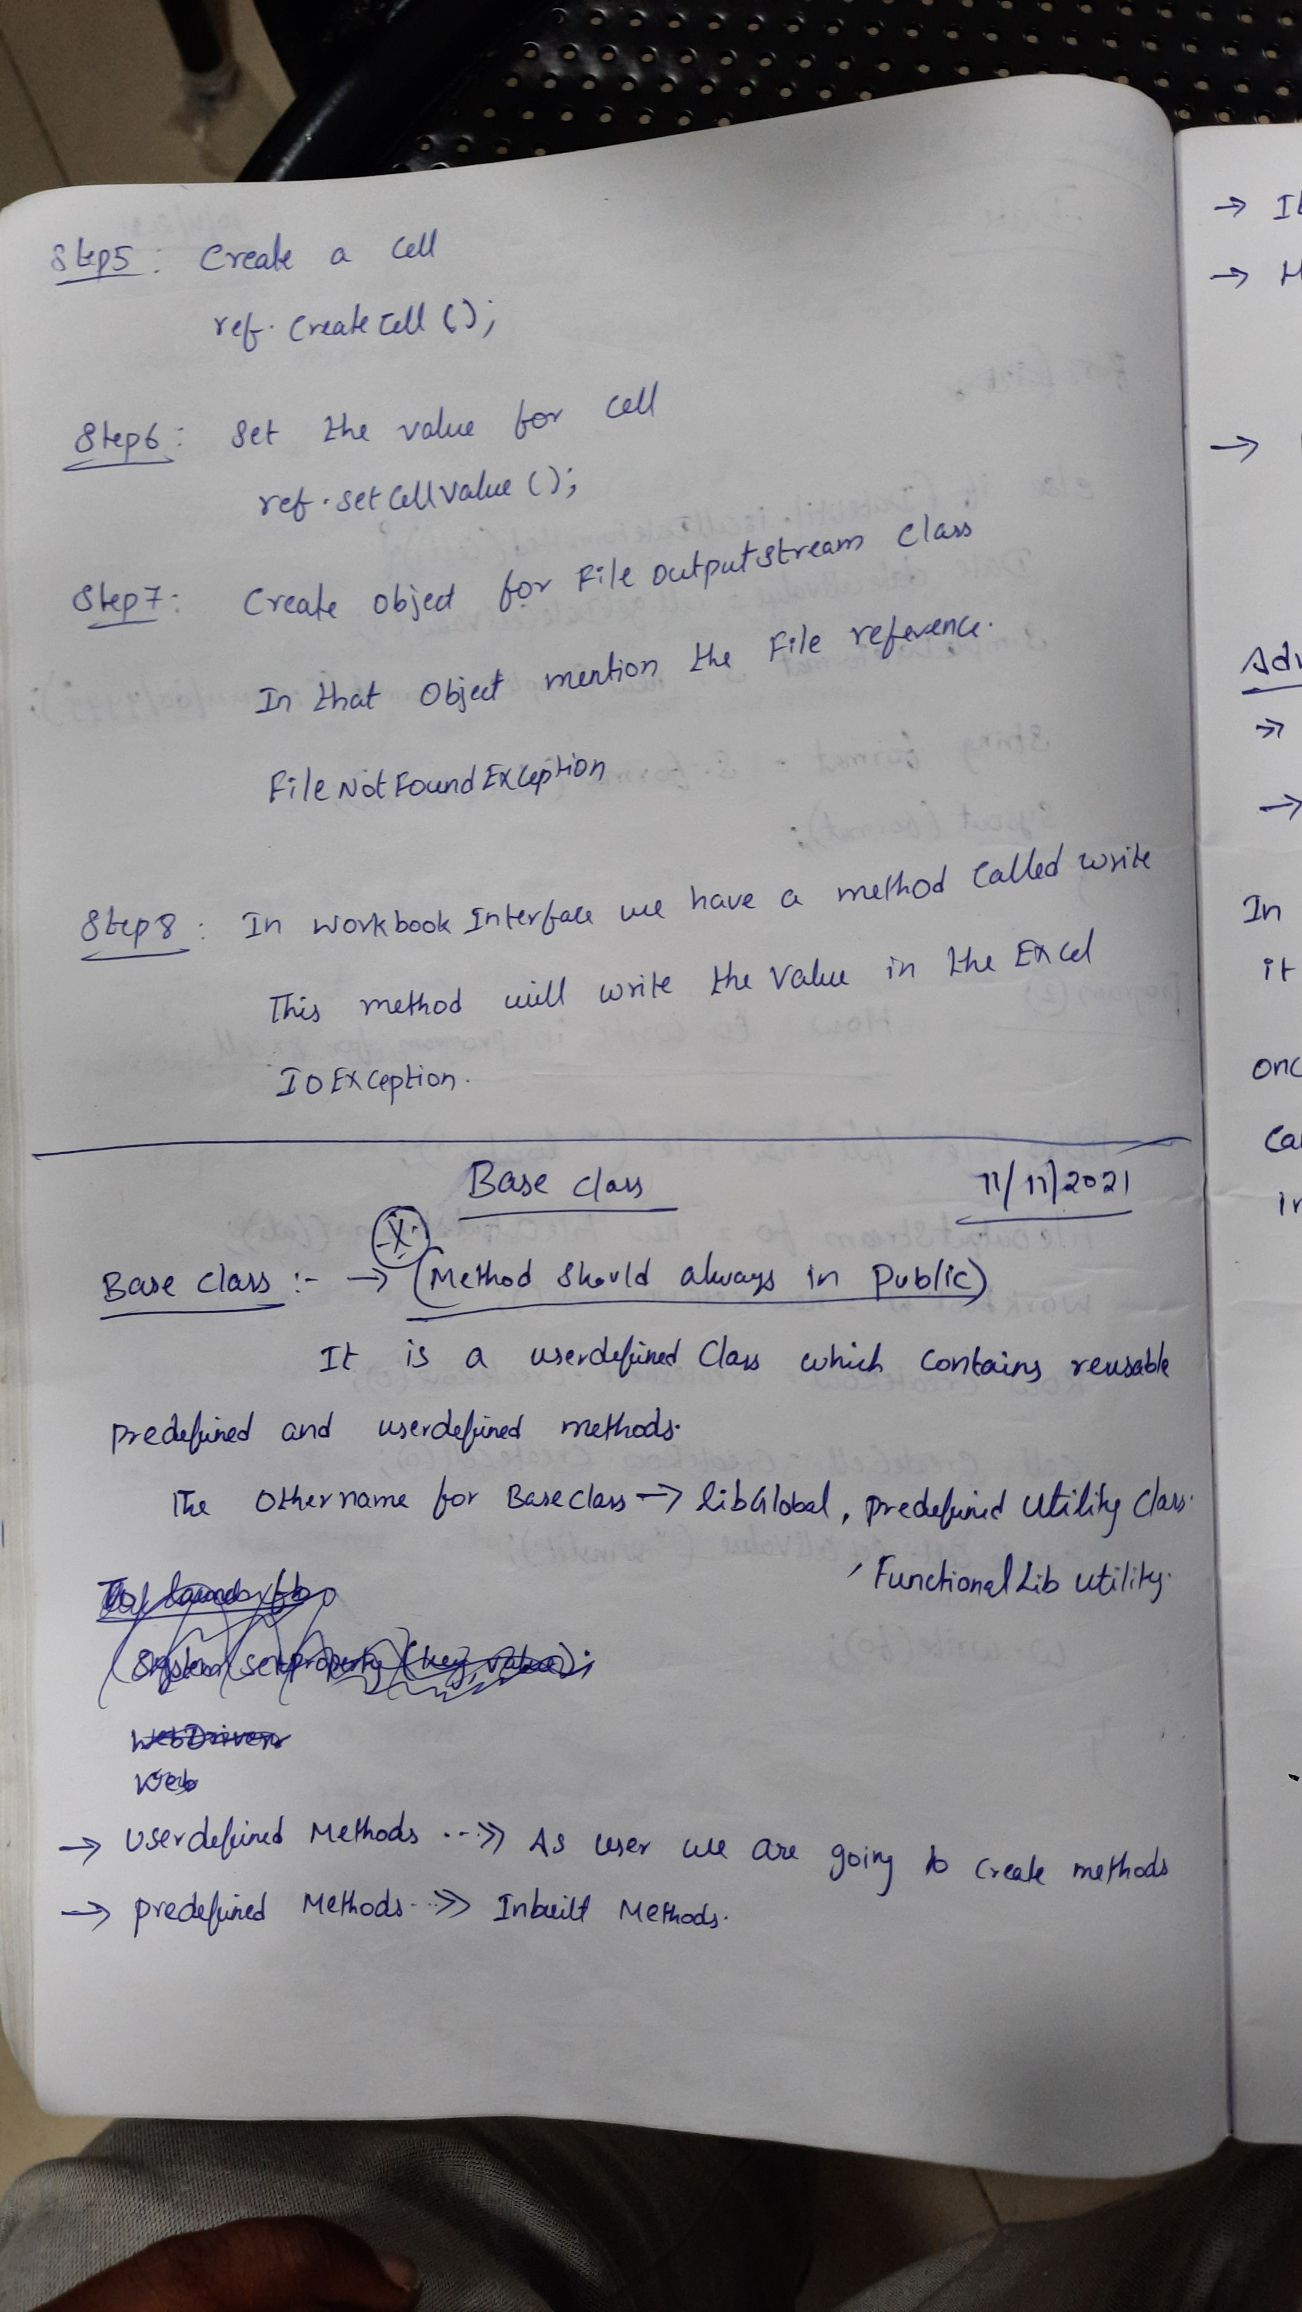 Step5: Create a cell
ref.createcell();
Step6: Set the value for cell
ref.setcellvalue();
Step7: Create object for File outputstream class
In that Object mention the File reference.
File Not Found Exception
Step8: In workbook Interface we have a method called write
This method will write the value in the Excel
IO Exception.
Base class 11/11/2021
Base class :- → (Method should always in public)
It is a userdefined class which contains reusable
predefined and userdefined methods.
The Other name for Baseclass → LibGlobal, predefined utility class.
, Functional Lib utility.
System.setproperty (key, value);
WebDriver
Web
→ Userdefined Methods --->> As user we are going to create methods
→ predefined Methods -->> Inbuilt Methods.
→ It
→ H
→
Adv
→
→
In
it
onc
Ca
in